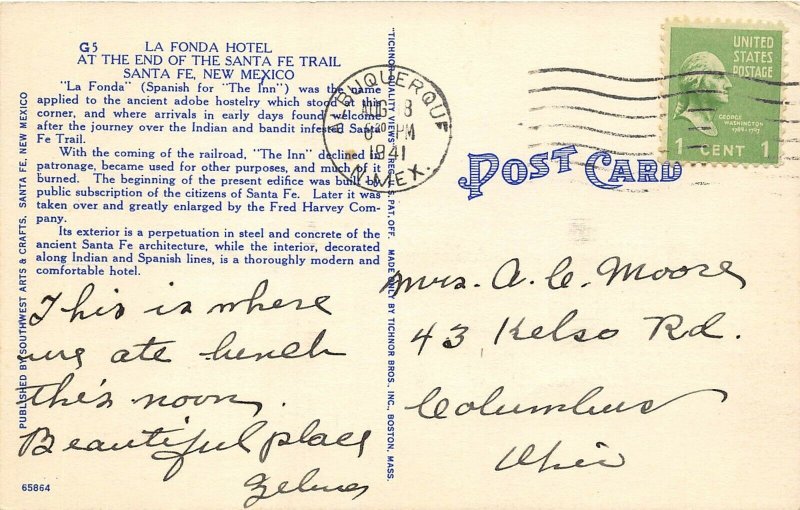 G5 LA FONDA HOTEL
AT THE END OF THE SANTA FE TRAIL
SANTA FE, NEW MEXICO
"La Fonda" (Spanish for "The Inn") was the name
applied to the ancient adobe hostelry which stood on this
corner, and where arrivals in early days found welcome
after the journey over the Indian and bandit infested Santa
Fe Trail.
With the coming of the railroad, "The Inn" declined in
patronage, became used for other purposes, and much of it
burned. The beginning of the present edifice was built by
public subscription of the citizens of Santa Fe. Later it was
taken over and greatly enlarged by the Fred Harvey Com-
pany.
Its exterior is a perpetuation in steel and concrete of the
ancient Santa Fe architecture, while the interior, decorated
along Indian and Spanish lines, is a thoroughly modern and
comfortable hotel.
This is where
we ate lunch
this noon.
Beautiful place
Zelma
65864
PUBLISHED BY SOUTHWEST ARTS & CRAFTS, SANTA FE, NEW MEXICO
"TICHNOR QUALITY VIEWS," REG. U. S. PAT. OFF. MADE ONLY BY TICHNOR BROS., INC., BOSTON, MASS.
ALBUQUERQUE
AUG 8
PM
1941
N. MEX.
POST CARD
UNITED
STATES
POSTAGE
GEORGE
WASHINGTON
1789-1797
1 CENT 1
Mrs. A. C. Moore
43 Kelso Rd.
Columbus
Ohio